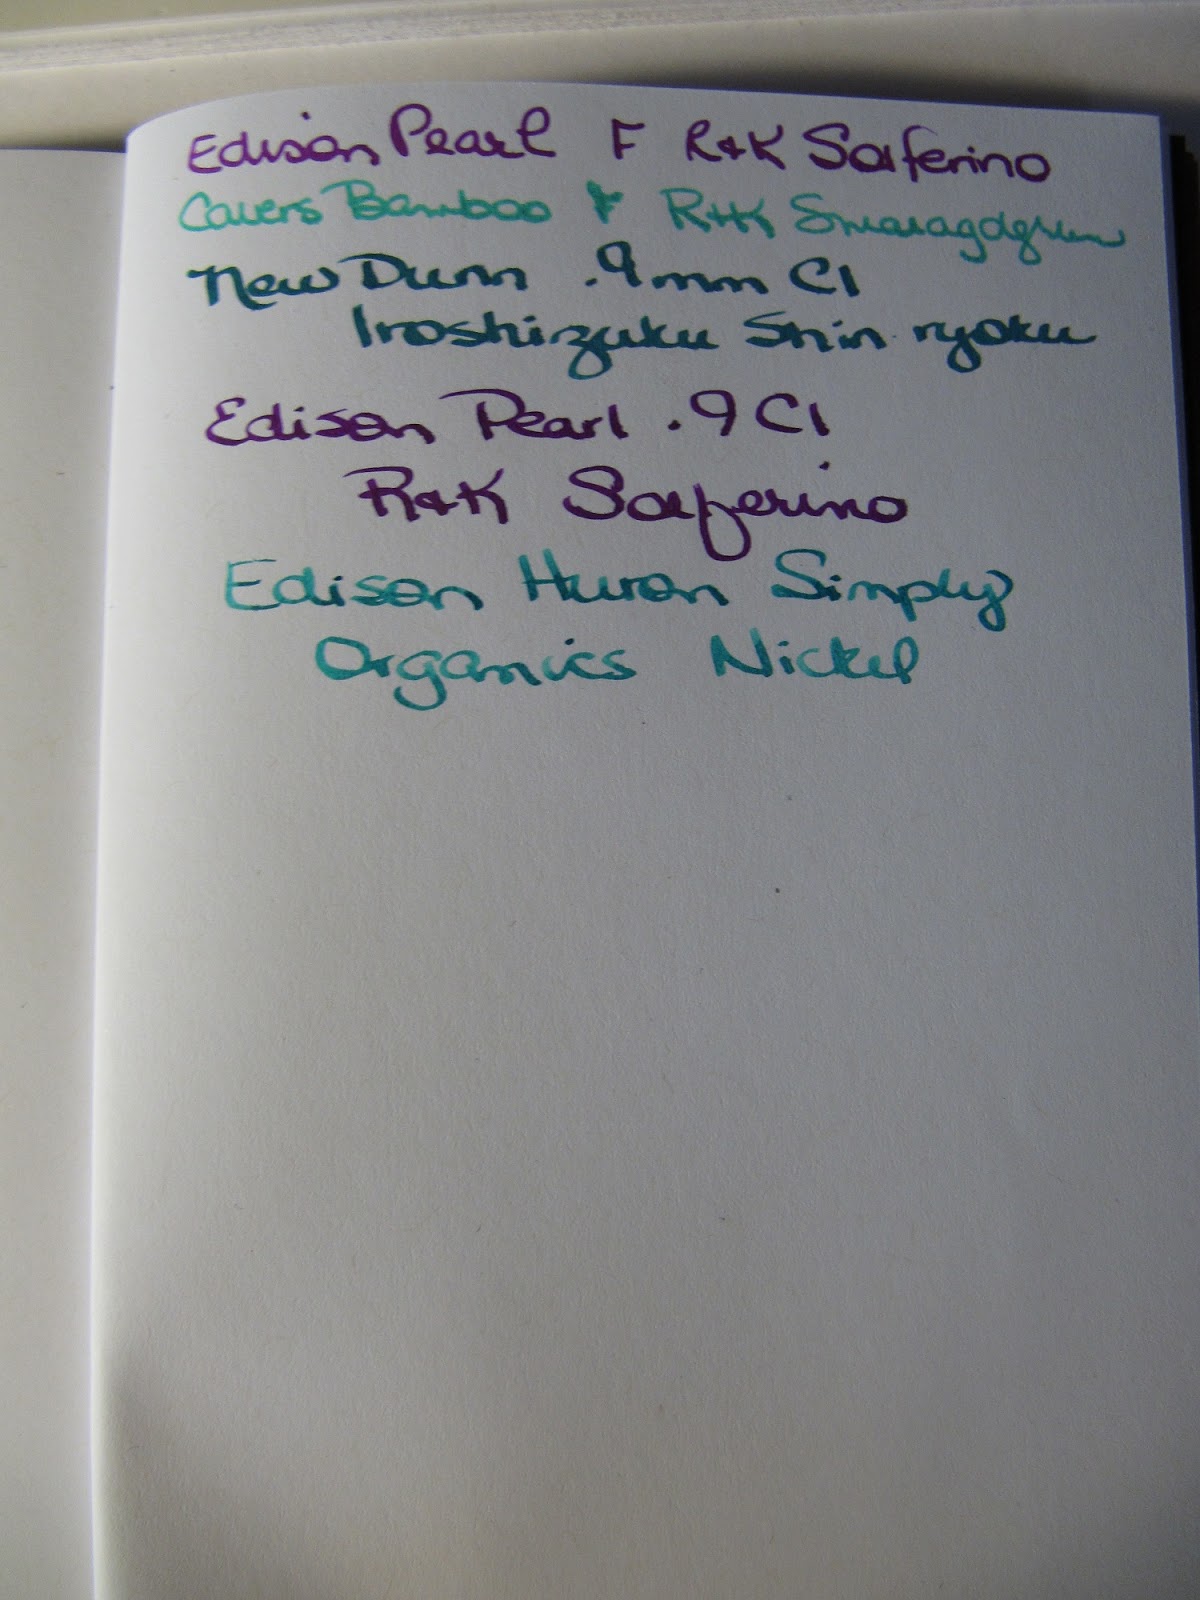 Edison Pearl F R&K Solferino
Cavers Bamboo F R&K Smaragdgrün
New Dunn .9mm CI
Iroshizuku Shin-ryoku
Edison Pearl .9 CI
R&K Solferino
Edison Huron Simply
Organics Nickel